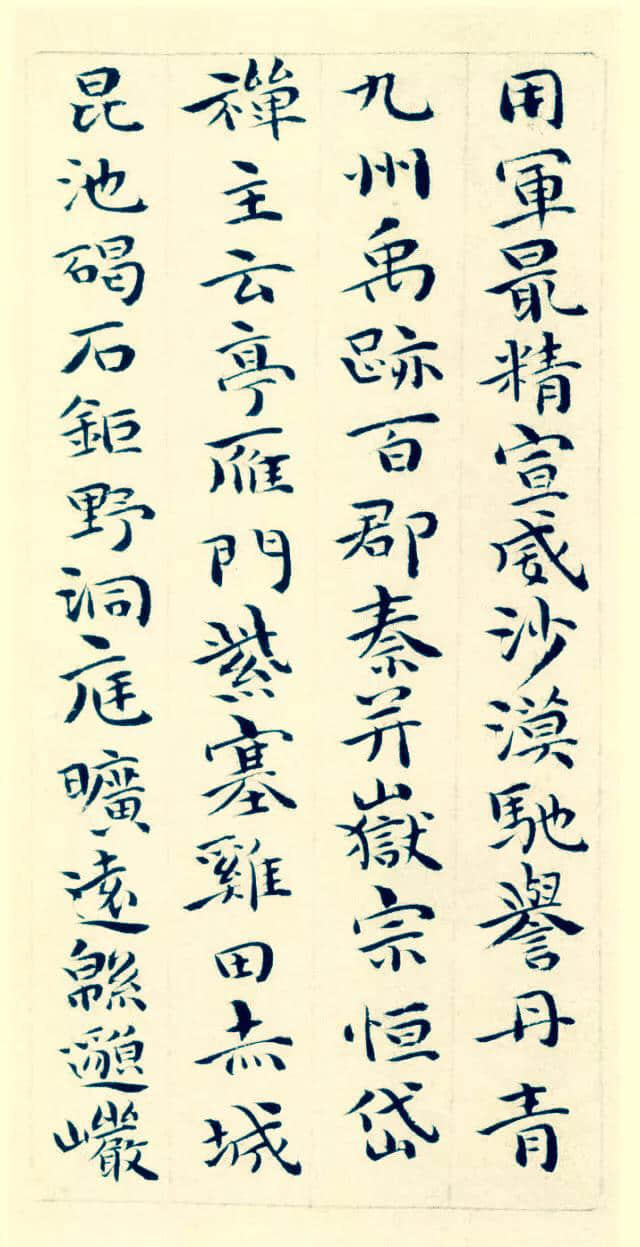 用軍最精宣威沙漠馳譽丹青
九州禹跡百郡秦并嶽宗恒岱
禪主云亭雁門紫塞雞田赤城
昆池碣石鉅野洞庭曠遠緜邈巖